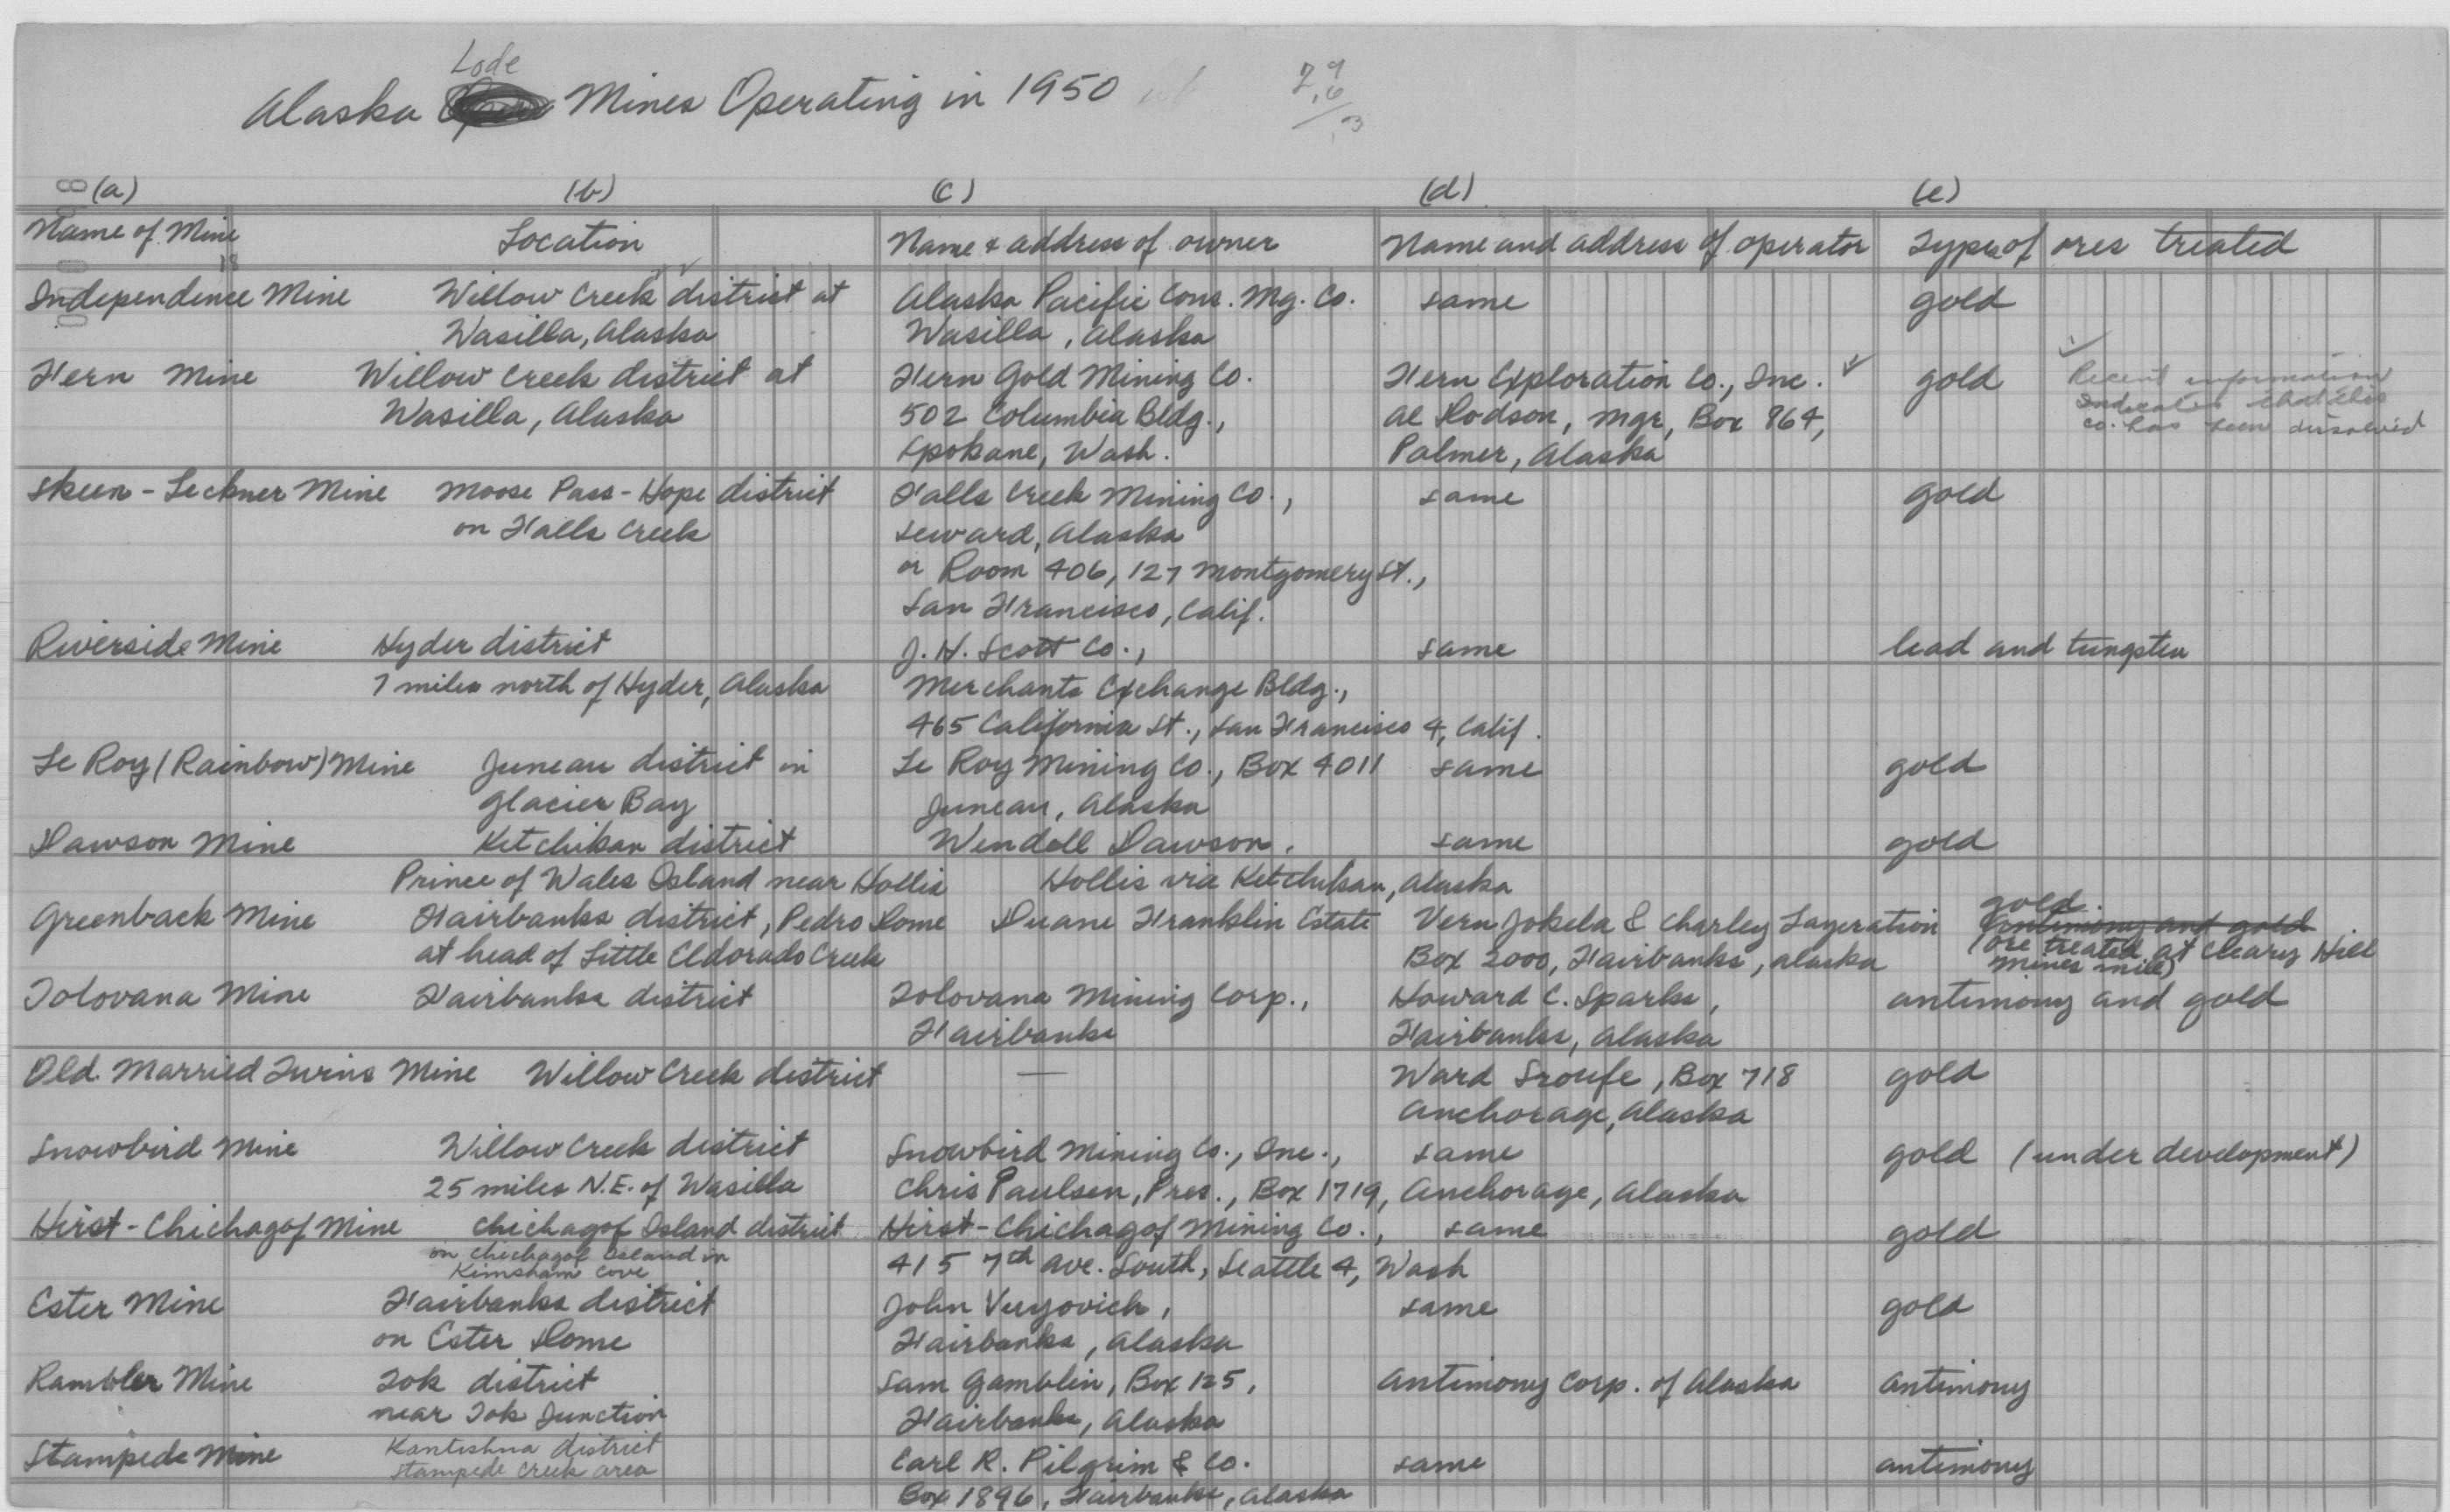 Lode
Alaska Mines Operating in 1950
(a) (b) (c) (d) (e)
Name of Mine Location Name & address of owner Name and address of operator Types of ores treated
Independence Mine Willow Creek district at Alaska Pacific Cons. Mg. Co. same gold
Wasilla, Alaska Wasilla, Alaska
Fern Mine Willow Creek district at Fern Gold Mining Co. Fern Exploration Co., Inc. gold Recent information
Wasilla, Alaska 502 Columbia Bldg., Al Dodson, Mgr, Box 864, indicates that this
Spokane, Wash. Palmer, Alaska co. has been dissolved
Skeen-Lechner Mine Moose Pass-Hope district Falls Creek Mining Co., same gold
on Falls Creek Seward, Alaska
or Room 406, 127 Montgomery St.,
San Francisco, Calif.
Riverside Mine Hyder district J. H. Scott Co., same lead and tungsten
7 miles north of Hyder, Alaska Merchants Exchange Bldg.,
465 California St., San Francisco 4, Calif.
Le Roy (Rainbow) Mine Juneau district in Le Roy Mining Co., Box 4011 same gold
Glacier Bay Juneau, Alaska
Dawson Mine Ketchikan district Wendell Dawson, same gold
Prince of Wales Island near Hollis Hollis via Ketchikan, Alaska
Greenback Mine Fairbanks district, Pedro Dome Duane Franklin Estate Vern Jokela & Charley Layeration gold
Antimony and gold
at head of Little Eldorado Creek Box 2000, Fairbanks, Alaska (ore treated at Cleary Hill
Mines mill)
Tolovana Mine Fairbanks district Tolovana Mining Corp., Howard C. Sparks, antimony and gold
Fairbanks Fairbanks, Alaska
Old Married Twins Mine Willow Creek district — Ward Sroufe, Box 718 gold
Anchorage, Alaska
Snowbird Mine Willow Creek district Snowbird Mining Co., Inc., same gold (under development)
25 miles N.E. of Wasilla Chris Paulsen, Pres., Box 1719, Anchorage, Alaska
Hirst-Chichagof Mine Chichagof Island district Hirst-Chichagof Mining Co., same gold
on Chichagof Island in 415 7th Ave. South, Seattle 4, Wash
Kimsham Cove
Ester Mine Fairbanks district John Vuyovich, same gold
on Ester Dome Fairbanks, Alaska
Rambler Mine Tok district Sam Gamblin, Box 125, Antimony Corp. of Alaska antimony
near Tok Junction Fairbanks, Alaska
Stampede Mine Kantishna district Earl R. Pilgrim & Co. same antimony
Stampede Creek area Box 1896, Fairbanks, Alaska